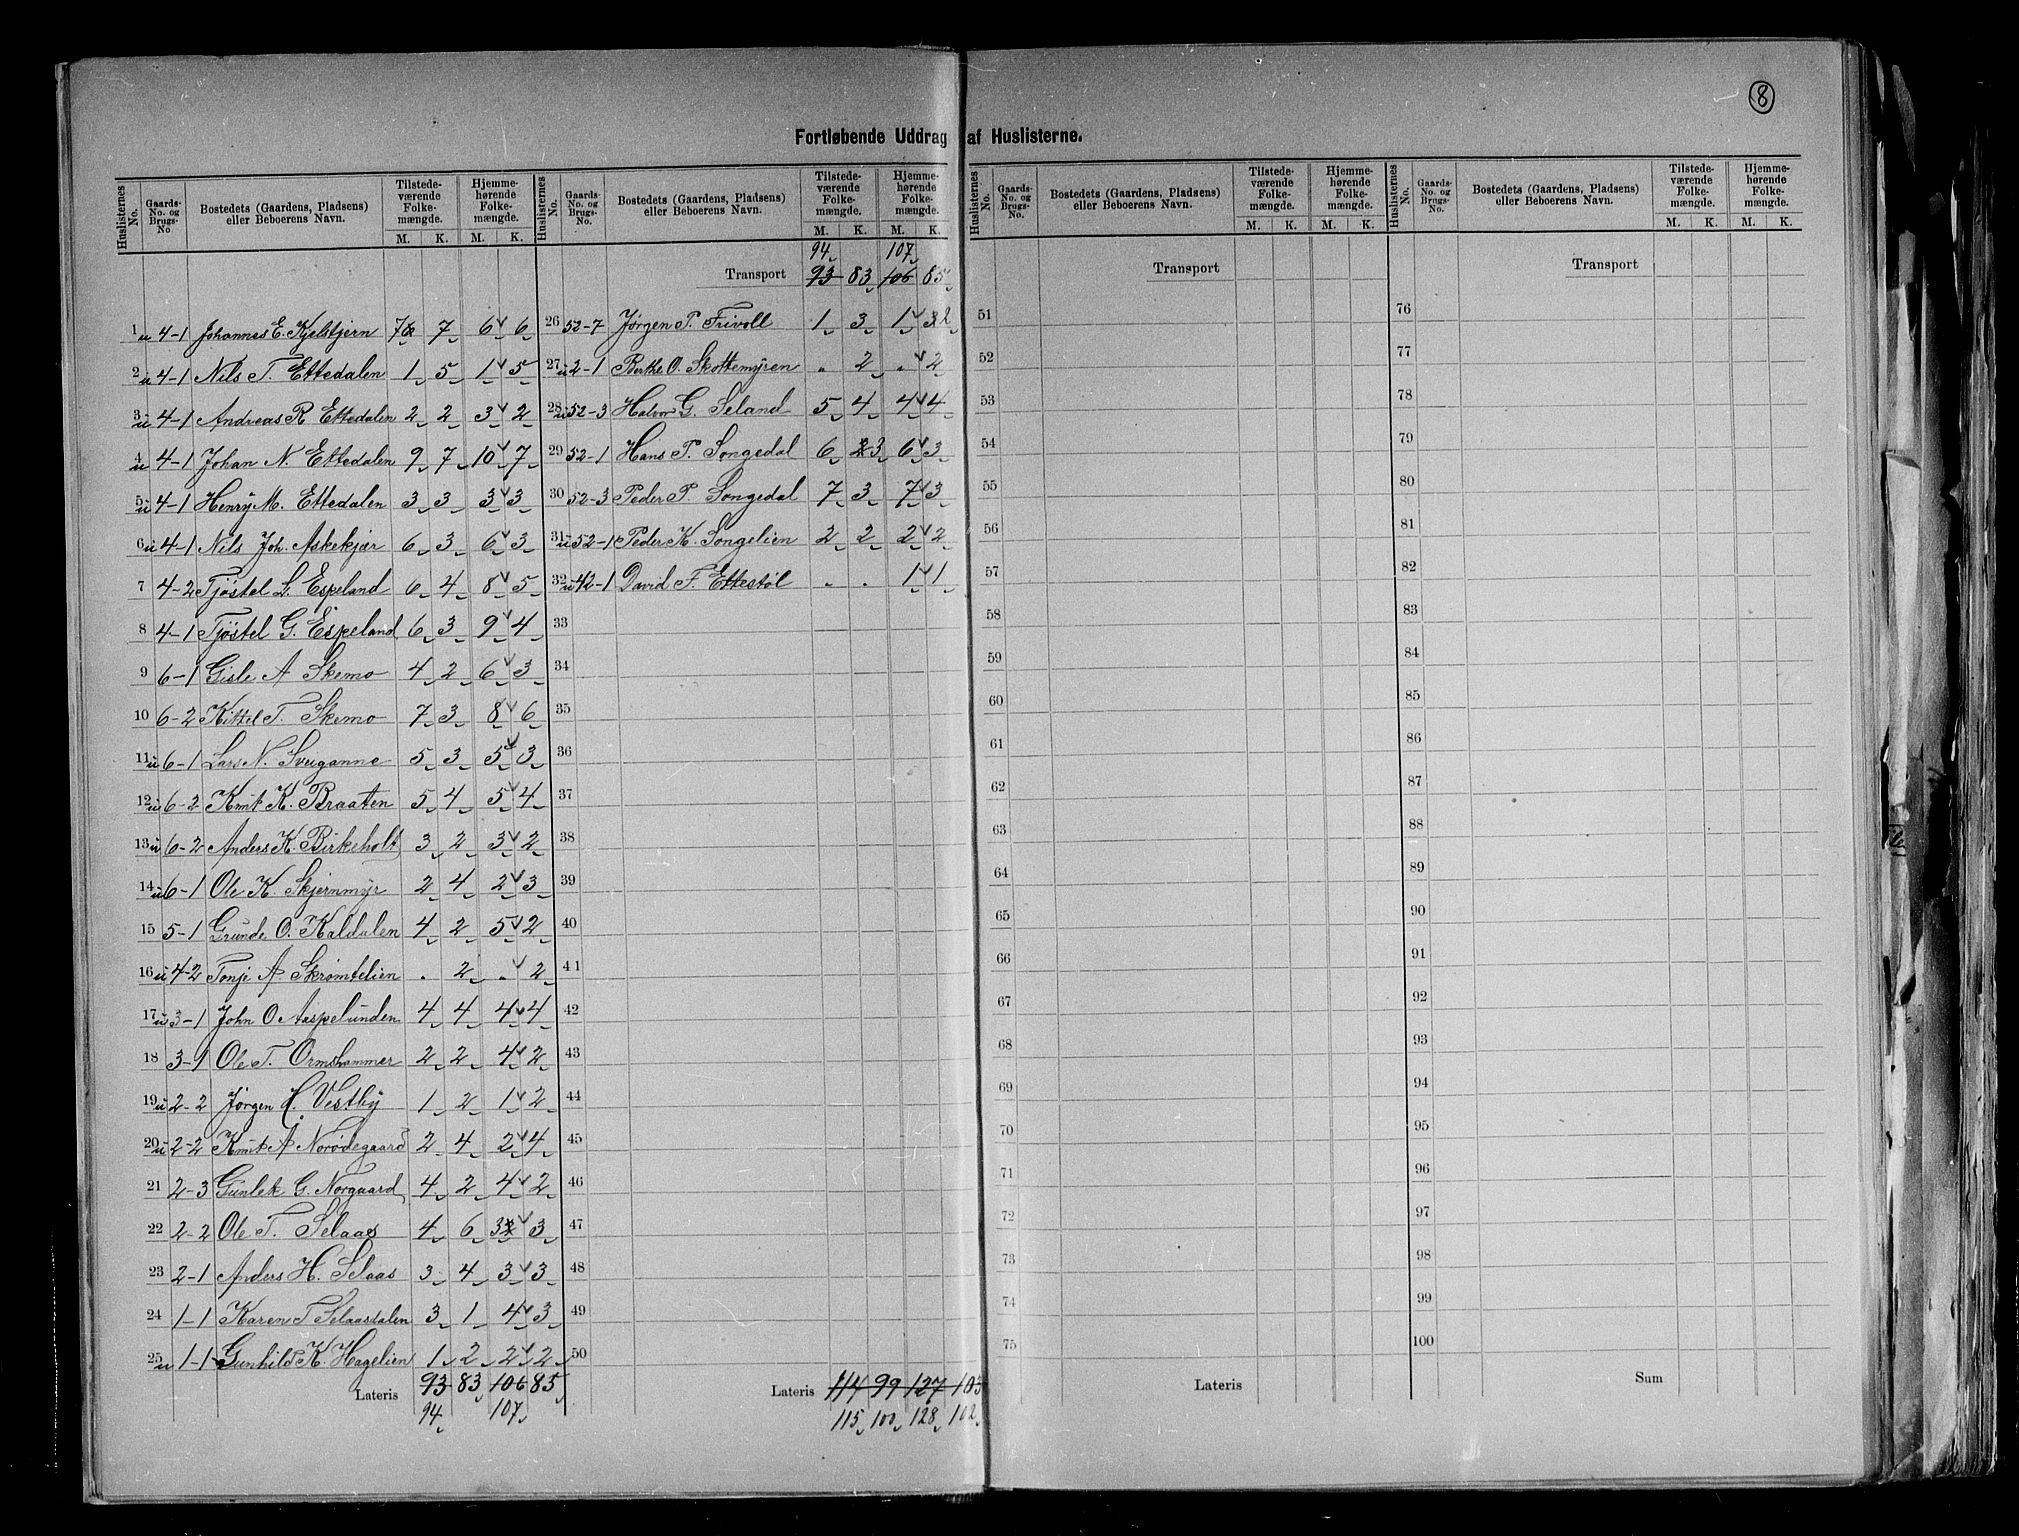 8
Fortløbende Uddrag af Huslisterne.
Huslisternes No. Gaards-No. og Brugs-No. Bostedets (Gaardens, Pladsens) eller Beboerens Navn. Tilstedeværende Folkemængde. M. K. Hjemmehørende Folkemængde. M. K.
1 u 4-1 Johannes E. Kjelstjern 7 7 6 6
2 u 4-1 Nils T. Ettedalen 1 5 1 5
3 u 4-1 Andreas R Ettedalen 2 2 3 2
4 u 4-1 Johan N. Ettedalen 9 7 10 7
5 u 4-1 Henry M. Ettedalen 3 3 3 3
6 u 4-1 Nils Joh. Askekjær 6 3 6 3
7 4-2 Tjøstel L. Espeland 6 4 8 5
8 4-1 Tjøstel G. Espeland 6 3 9 4
9 6-1 Gisle A Skemo 4 2 6 3
10 6-2 Kittel T. Skemo 7 3 8 6
11 u 6-1 Lars N. Sveiganne 5 3 5 3
12 u 6-2 Knut K. Braaten 5 4 5 4
13 u 6-2 Anders K. Birkeholt 3 2 3 2
14 u 6-1 Ole K. Skjernmyr 2 4 2 3
15 5-1 Grunde O. Kaldalen 4 2 5 2
16 u 4-2 Tonje A. Skrømtelien . 2 . 2
17 u 3-1 John O. Aaspelunden 4 4 4 4
18 3-1 Ole T. Ormshammer 2 2 4 2
19 u 2-2 Jørgen H. Vestby 1 2 1 2
20 u 2-2 Knut A Norødegaard 2 4 2 4
21 2-3 Gunlek G. Norgaard 4 2 4 2
22 2-2 Ole T. Selaas 4 6 3 3
23 2-1 Anders H. Selaas 3 4 3 3
24 1-1 Karen T Selaasdalen 3 1 4 3
25 u 1-1 Gunhild K. Hagelien 1 2 2 2
Lateris 93 83 106 85
94 107
Huslisternes No. Gaards-No. og Brugs-No. Bostedets (Gaardens, Pladsens) eller Beboerens Navn. Tilstedeværende Folkemængde. M. K. Hjemmehørende Folkemængde. M. K.
94 107
Transport 93 83 106 85
26 52-7 Jørgen P. Trivoll 1 3 1 3 2
27 u 2-1 Berthe O. Skottemyren . 2 . 2
28 u 52-3 Halvor G. Seland 5 4 4 4
29 52-1 Hans P. Songedal 6 3 6 3
30 52-3 Peder P. Songedal 7 3 7 3
31 u 52-1 Peder K. Songelien 2 2 2 2
32 u 42-1 David F. Ettestøl . . 1 1
33
34
35
36
37
38
39
40
41
42
43
44
45
46
47
48
49
50
Lateris 114 99 127 103
115 100 128 102
Huslisternes No. Gaards-No. og Brugs-No. Bostedets (Gaardens, Pladsens) eller Beboerens Navn. Tilstedeværende Folkemængde. M. K. Hjemmehørende Folkemængde. M. K.
Transport
51
52
53
54
55
56
57
58
59
60
61
62
63
64
65
66
67
68
69
70
71
72
73
74
75
Lateris
Huslisternes No. Gaards-No. og Brugs-No. Bostedets (Gaardens, Pladsens) eller Beboerens Navn. Tilstedeværende Folkemængde. M. K. Hjemmehørende Folkemængde. M. K.
Transport
76
77
78
79
80
81
82
83
84
85
86
87
88
89
90
91
92
93
94
95
96
97
98
99
100
Sum